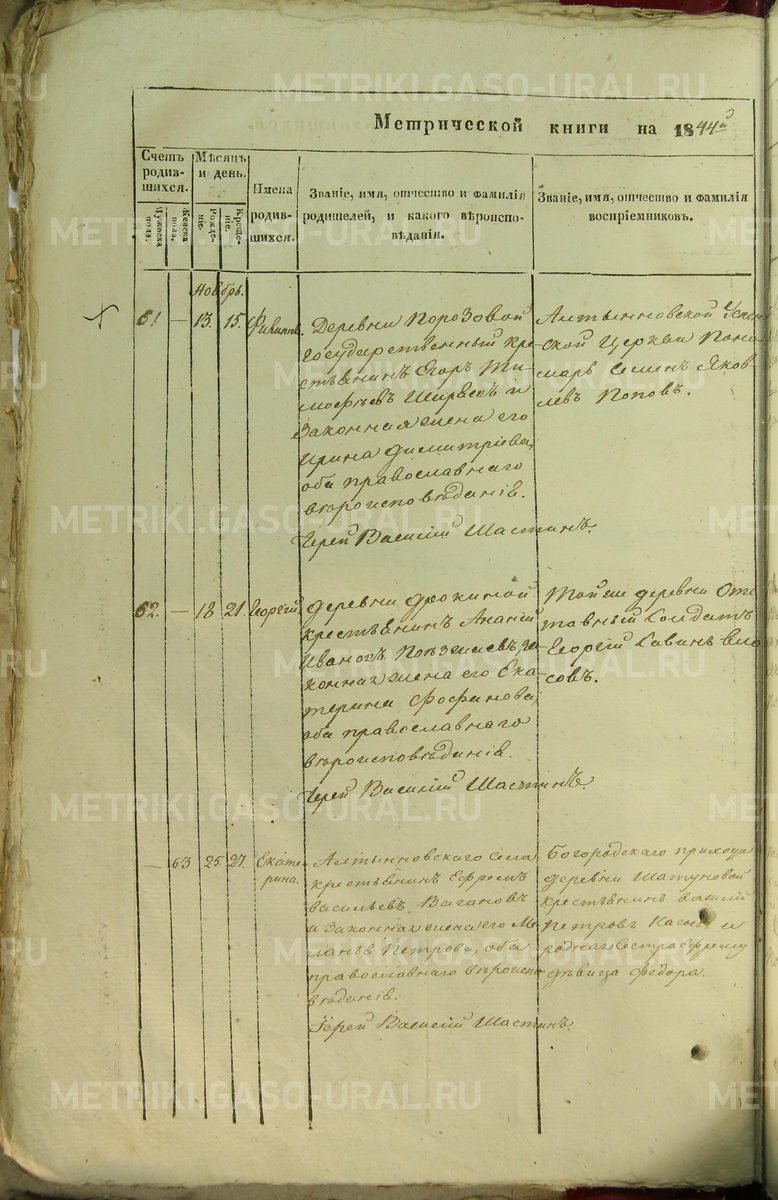 METRIKI.GASO-URAL.RU
Метрической книги на 1844й
Счетъ родив-шихся.
Мужеска пола.
Женска пола.
Мѣсяцъ и день.
Рожде-ніе.
Креще-ніе.
Имена родив-шихся.
Званіе, имя, отчество и фамилія
родителей, и какого вѣроиспо-
вѣданія.
Званіе, имя, отчество и фамилія
воспріемниковъ.
Ноябрь.
61. — 13. 15. Филиппъ.
Деревни Порозовой
государственный кре-
стьянинъ Егоръ Ти-
мофѣевъ Ширяевъ и
законная жена его
Ирина Димитріева,
оба православнаго
вѣроисповѣданія.
Іерей Василій Шастинъ.
Алтынновской Успен
ской Церкви Поно
марь Семенъ Яков
левъ Поповъ.
62. — 18 21 Георгій
Деревни Фрокиной
крестьянинъ Ананій
Ивановъ за
конная жена его Ека
терина Фофанова,
оба православнаго
вѣроисповѣданія.
Іерей Василій Шастинъ.
Тойже деревни Отс
тавный Солдатъ
Георгій Савинъ Вла
совъ.
— 63 25. 27. Екате-
рина.
Алтынновскаго села
крестьянинъ Ефремъ
Васильевъ Вагановъ
и законная жена его Ме
ланья Петрова, оба
православнаго вѣроиспо
вѣданія.
Іерей Василій Шастинъ.
Богородскаго прихода
деревни Шатуновой
крестьянинъ Василій
Петровъ и
родная сестра Ефрему
дѣвица Федора.